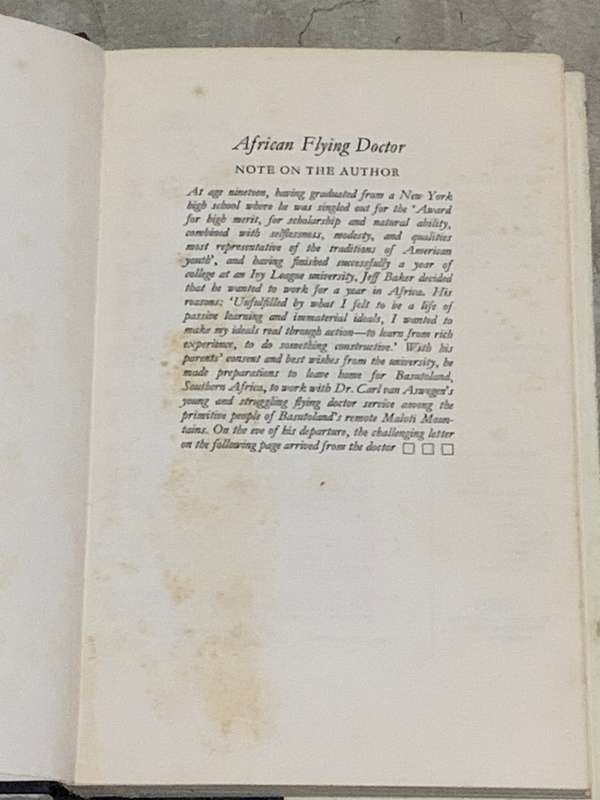 African Flying Doctor
NOTE ON THE AUTHOR
At age nineteen, having graduated from a New York
high school where he was singled out for the ‘Award
for high merit, for scholarship and natural ability,
combined with selflessness, modesty, and qualities
most representative of the traditions of American
youth’, and having finished successfully a year of
college at an Ivy League university, Jeff Baker decided
that he wanted to work for a year in Africa. His
reasons: ‘Unfulfilled by what I felt to be a life of
passive learning and immaterial ideals, I wanted to
make my ideals real through action—to learn from rich
experience, to do something constructive.’ With his
parents’ consent and best wishes from the university, he
made preparations to leave home for Basutoland,
Southern Africa, to work with Dr. Carl van Aswegen's
young and struggling flying doctor service among the
primitive people of Basutoland's remote Maloti Moun-
tains. On the eve of his departure, the challenging letter
on the following page arrived from the doctor □ □ □